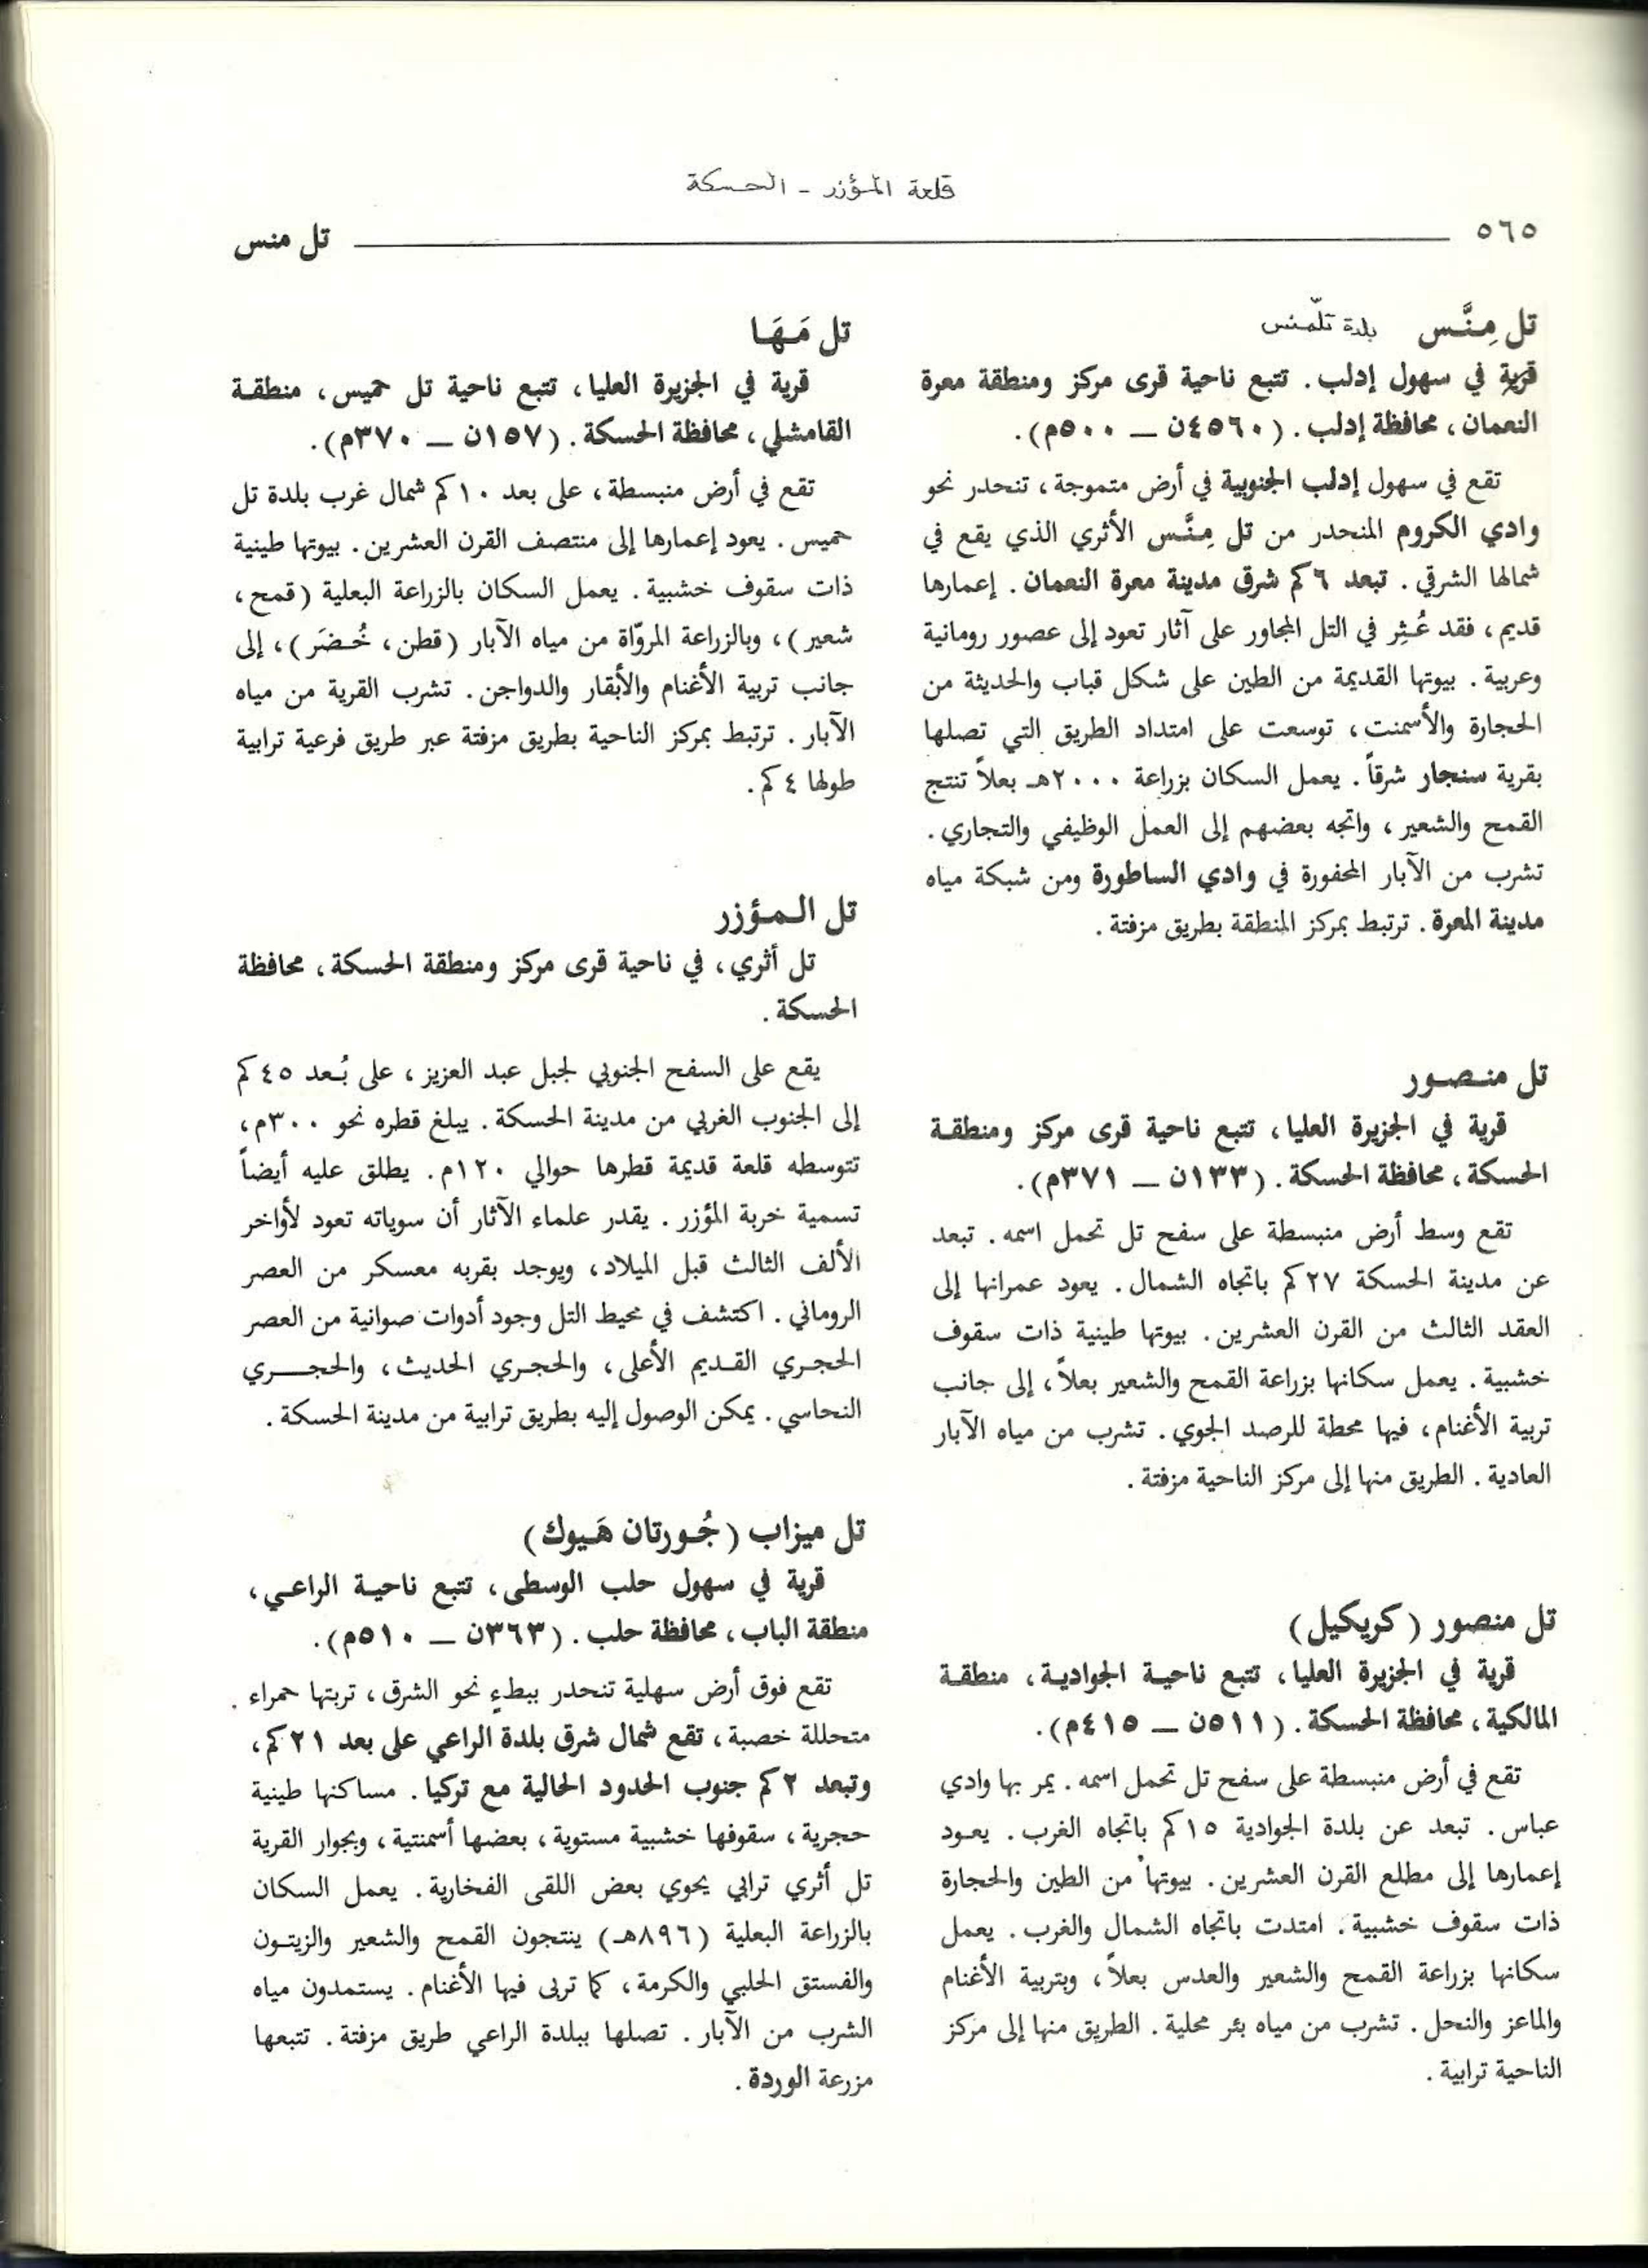 قلعة المؤزر - الحسكة
٥٦٥
تل منس
تل مِنَّس بلدة تلّمنس
قرية في سهول إدلب. تتبع ناحية قرى مركز ومنطقة معرة
النعمان، محافظة إدلب. (٤٥٦٠ن — ٥٠٠م).
تقع في سهول إدلب الجنوبية في أرض متموجة، تنحدر نحو
وادي الكروم المنحدر من تل مِنَّس الأثري الذي يقع في
شمالها الشرقي. تبعد ٦كم شرق مدينة معرة النعمان. إعمارها
قديم، فقد عُثِر في التل المجاور على آثار تعود إلى عصور رومانية
وعربية. بيوتها القديمة من الطين على شكل قباب والحديثة من
الحجارة والأسمنت، توسعت على امتداد الطريق التي تصلها
بقرية سنجار شرقاً. يعمل السكان بزراعة ٢٠٠٠هـ بعلاً تنتج
القمح والشعير، واتجه بعضهم إلى العمل الوظيفي والتجاري.
تشرب من الآبار المحفورة في وادي الساطورة ومن شبكة مياه
مدينة المعرة. ترتبط بمركز المنطقة بطريق مزفتة.
تل منـصـور
قرية في الجزيرة العليا، تتبع ناحية قرى مركز ومنطقـة
الحسكة، محافظة الحسكة. (١٣٣ن — ٣٧١م).
تقع وسط أرض منبسطة على سفح تل تحمل اسمه. تبعد
عن مدينة الحسكة ٢٧كم باتجاه الشمال. يعود عمرانها إلى
العقد الثالث من القرن العشرين. بيوتها طينية ذات سقوف
خشبية. يعمل سكانها بزراعة القمح والشعير بعلاً، إلى جانب
تربية الأغنام، فيها محطة للرصد الجوي. تشرب من مياه الآبار
العادية. الطريق منها إلى مركز الناحية مزفتة.
تل منصور (كريكيل)
قرية في الجزيرة العليا، تتبع ناحيـة الجواديـة، منطقـة
المالكية، محافظة الحسكة. (٥١١ن — ٤١٥م).
تقع في أرض منبسطة على سفح تل تحمل اسمه. يمر بها وادي
عباس. تبعد عن بلدة الجوادية ١٥كم باتجاه الغرب. يعـود
إعمارها إلى مطلع القرن العشرين. بيوتها من الطين والحجارة
ذات سقوف خشبية. امتدت باتجاه الشمال والغرب. يعمل
سكانها بزراعة القمح والشعير والعدس بعلاً، وبتربية الأغنام
والماعز والنحل. تشرب من مياه بئر محلية. الطريق منها إلى مركز
الناحية ترابية.
تل مَـهَـا
قرية في الجزيرة العليا، تتبع ناحية تل حميس، منطقـة
القامشلي، محافظة الحسكة. (١٥٧ن — ٣٧٠م).
تقع في أرض منبسطة، على بعد ١٠كم شمال غرب بلدة تل
حميس. يعود إعمارها إلى منتصف القرن العشرين. بيوتها طينية
ذات سقوف خشبية. يعمل السكان بالزراعة البعلية (قمح،
شعير)، وبالزراعة المروّاة من مياه الآبار (قطن، خُـضَر)، إلى
جانب تربية الأغنام والأبقار والدواجن. تشرب القرية من مياه
الآبار. ترتبط بمركز الناحية بطريق مزفتة عبر طريق فرعية ترابية
طولها ٤كم.
تل الـمـؤزر
تل أثري، في ناحية قرى مركز ومنطقة الحسكة، محافظة
الحسكة.
يقع على السفح الجنوبي لجبل عبد العزيز، على بُـعد ٤٥كم
إلى الجنوب الغربي من مدينة الحسكة. يبلغ قطره نحو ٣٠٠م،
تتوسطه قلعة قديمة قطرها حوالي ١٢٠م. يطلق عليه أيضاً
تسمية خربة المؤزر. يقدر علماء الآثار أن سوياته تعود لأواخر
الألف الثالث قبل الميلاد، ويوجد بقربه معسكر من العصر
الروماني. اكتشف في محيط التل وجود أدوات صوانية من العصر
الحجـري القـديم الأعلى، والحجـري الحديث، والحجــــري
النحاسي. يمكن الوصول إليه بطريق ترابية من مدينة الحسكة.
تل ميزاب (جُـورتان هَـيوك)
قرية في سهول حلب الوسطى، تتبع ناحيـة الراعـي،
منطقة الباب، محافظة حلب. (٣٦٣ن — ٥١٠م).
تقع فوق أرض سهلية تنحدر ببطءٍ نحو الشرق، تربتها حمراء
متحللة خصبة، تقع شمال شرق بلدة الراعي على بعد ٢١كم،
وتبعد ٢كم جنوب الحدود الحالية مع تركيا. مساكنها طينية
حجرية، سقوفها خشبية مستوية، بعضها أسمنتية، وبجوار القرية
تل أثري ترابي يحوي بعض اللقى الفخارية. يعمل السكان
بالزراعة البعلية (٨٩٦هـ) ينتجون القمح والشعير والزيتـون
والفستق الحلبي والكرمة، كما تربى فيها الأغنام. يستمدون مياه
الشرب من الآبار. تصلها ببلدة الراعي طريق مزفتة. تتبعها
مزرعة الوردة.